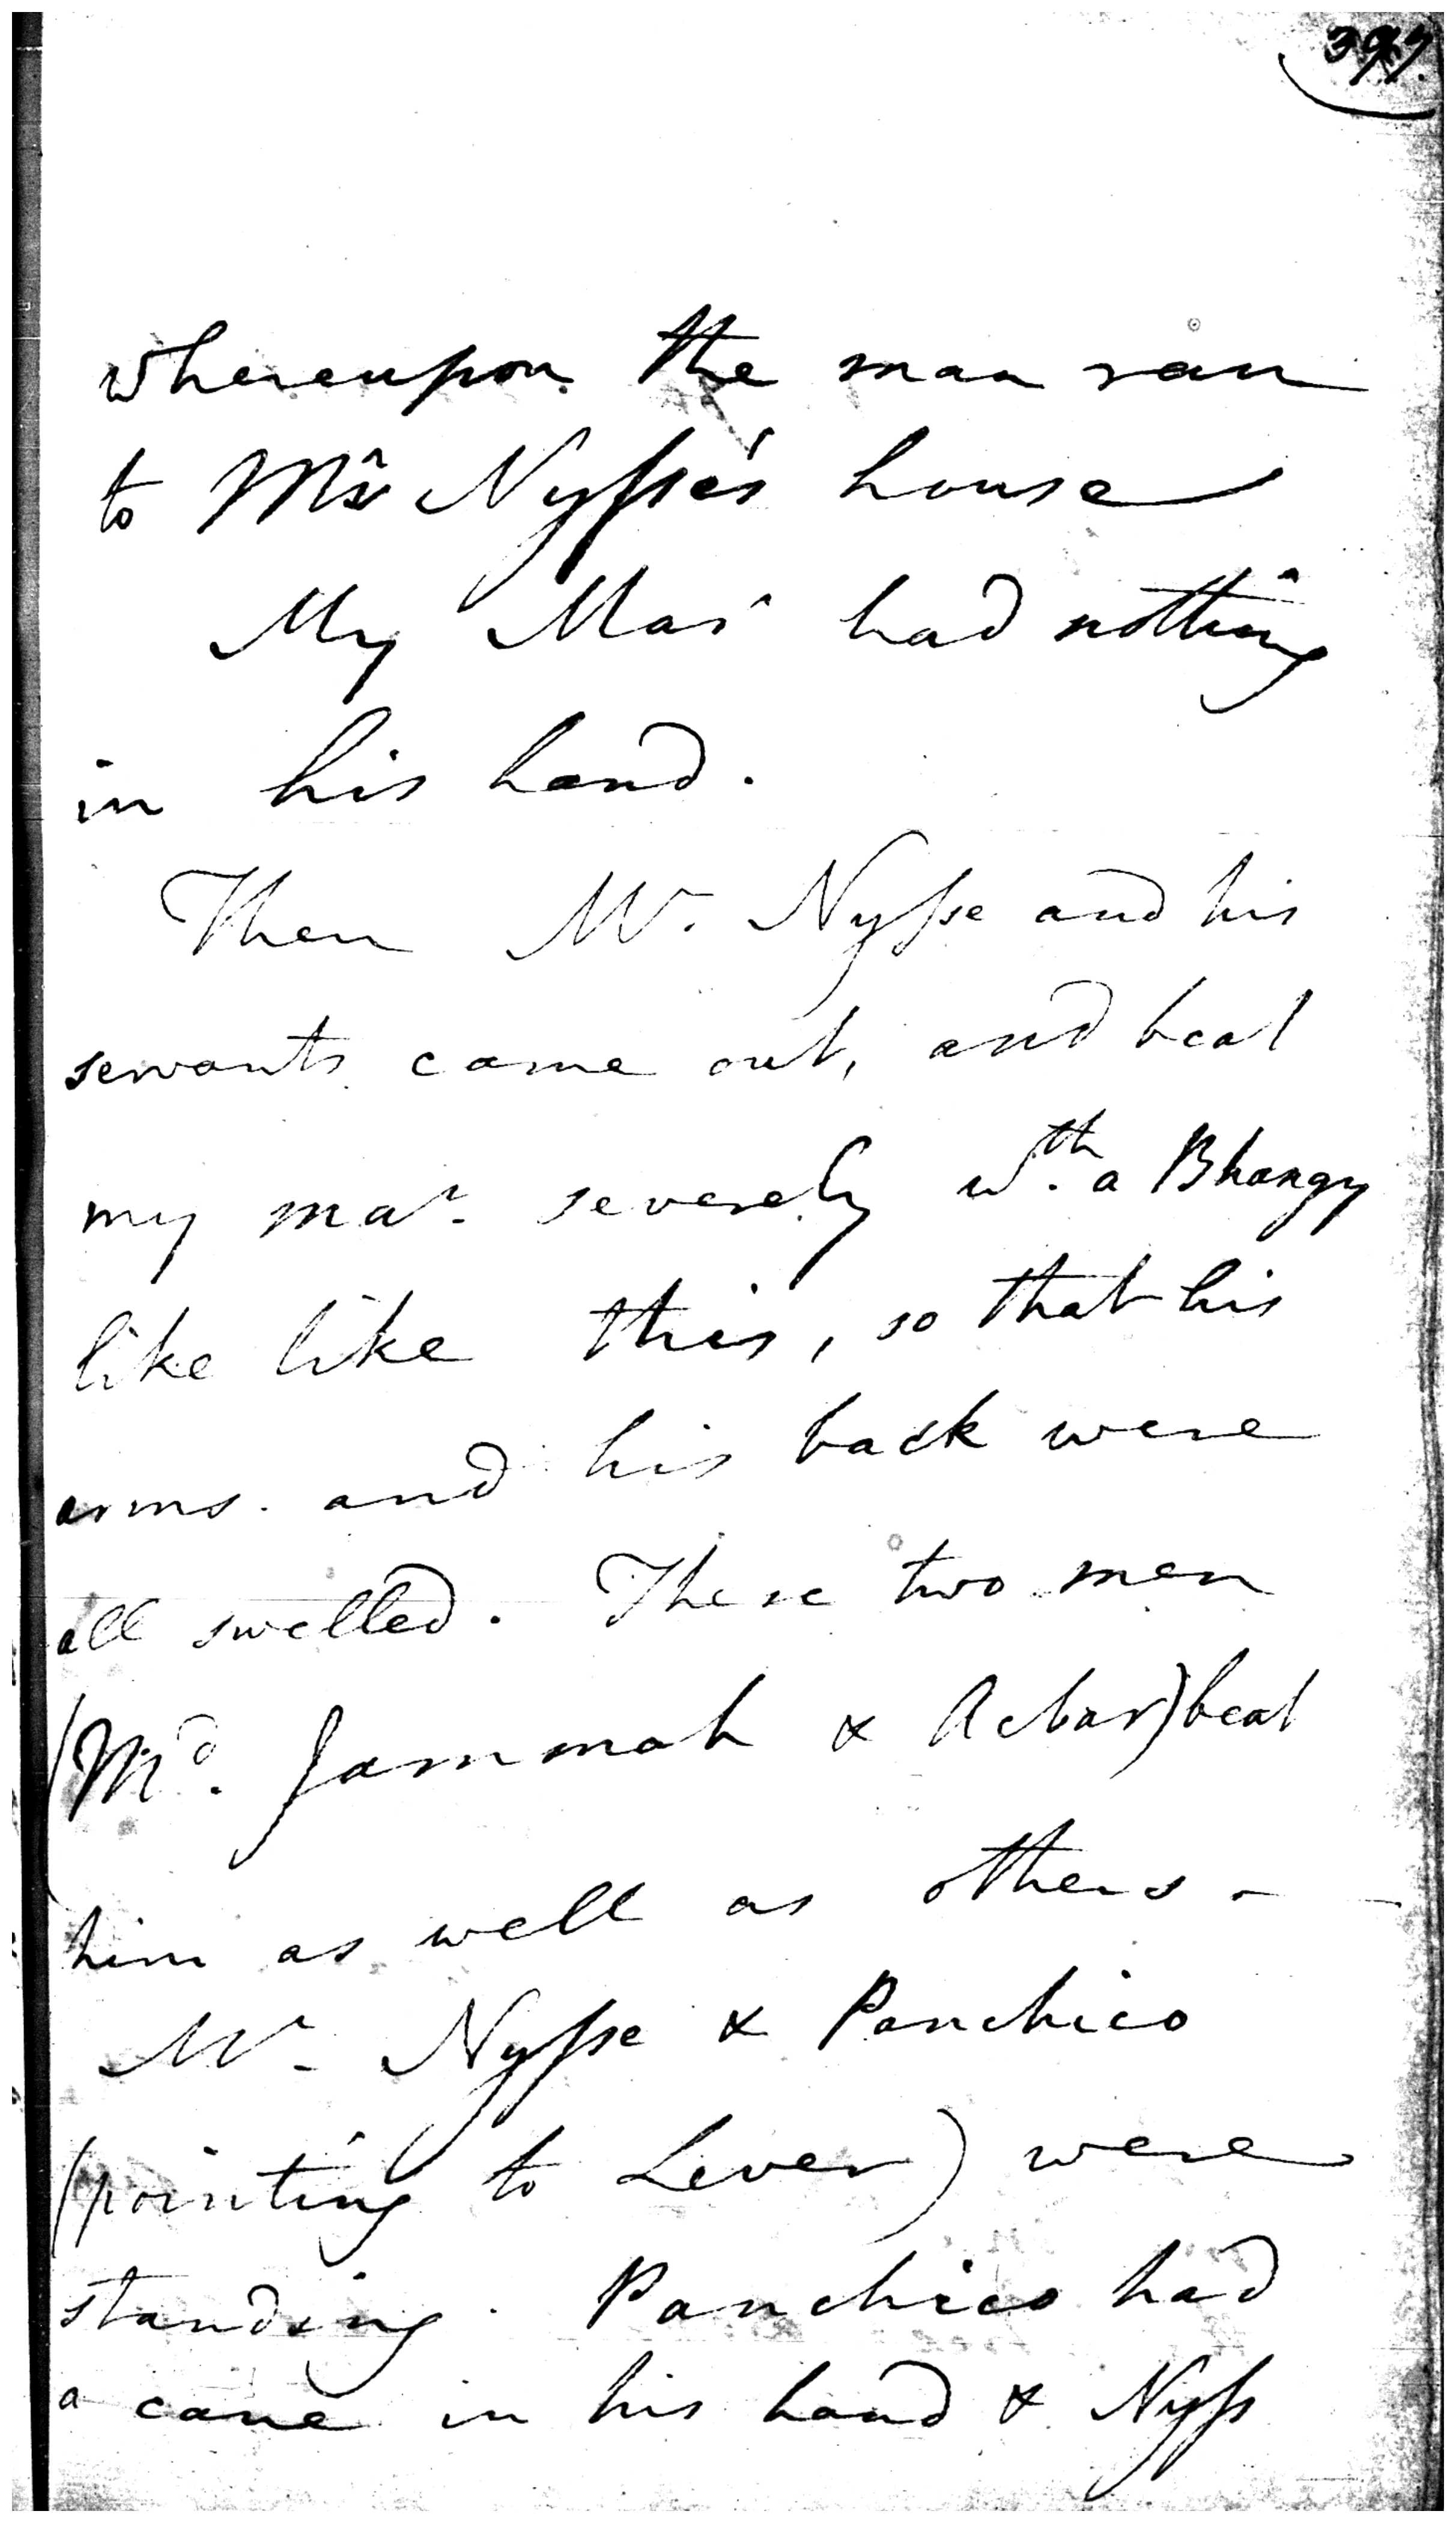 whereupon the man ran
to Mr Nysse's house
My Mar had nothing
in his hand.
Then Mr. Nysse and his
servants came out, and beat
my mar. severely wth. a Bhangy
like like this, so that his
arms. and his back were
all swelled. These two men
(Md. Jammah & Acbar) beat
him as well as others -
Mr. Nysse & Panchico
(pointing to Lever) were
standing. Panchico had
a cane in his hand & Nyss